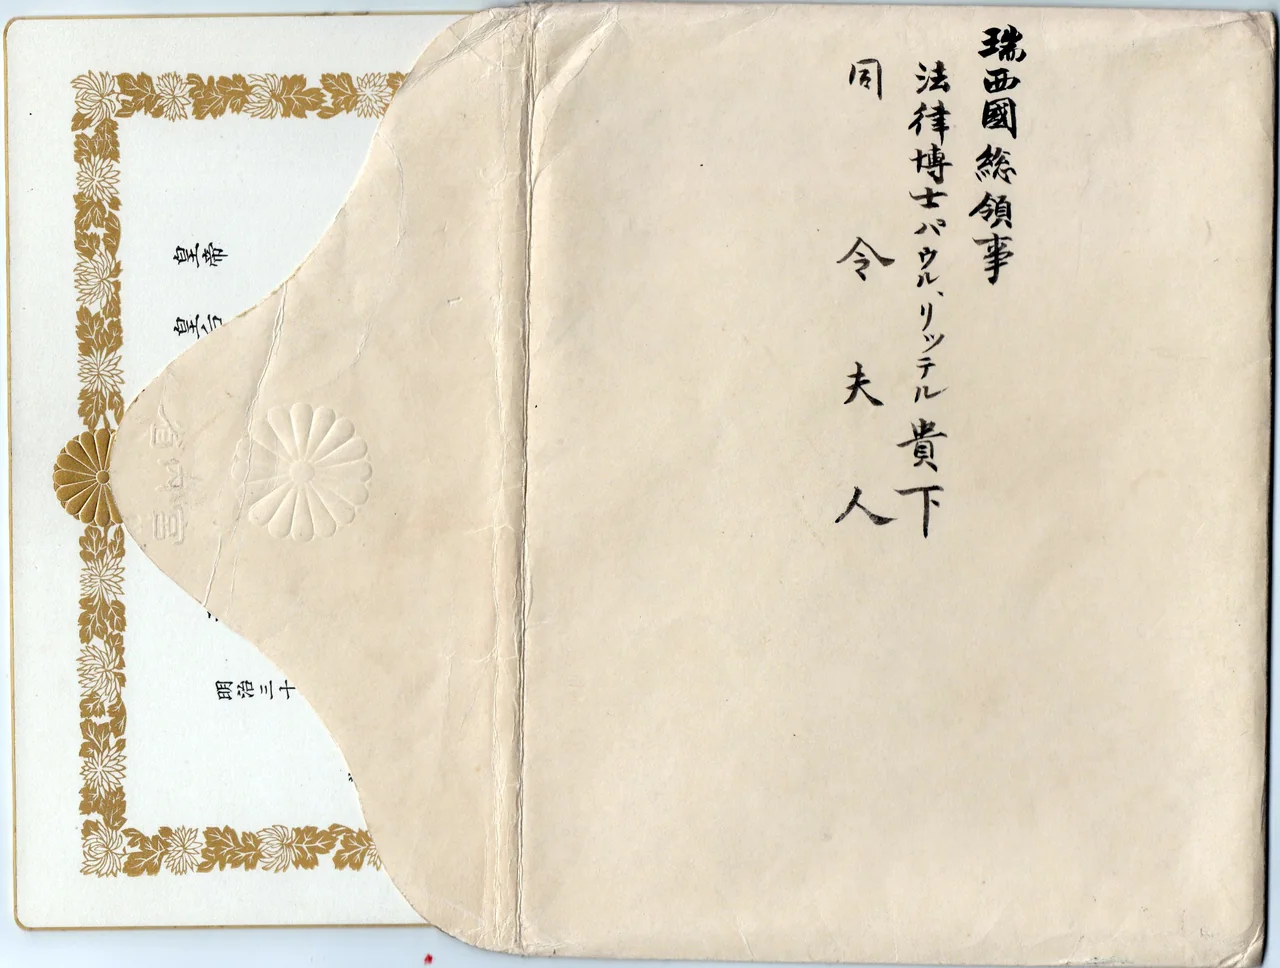 瑞西國総領事
法律博士パウル、リッテル貴下
同令夫人
皇帝
皇
明治三十